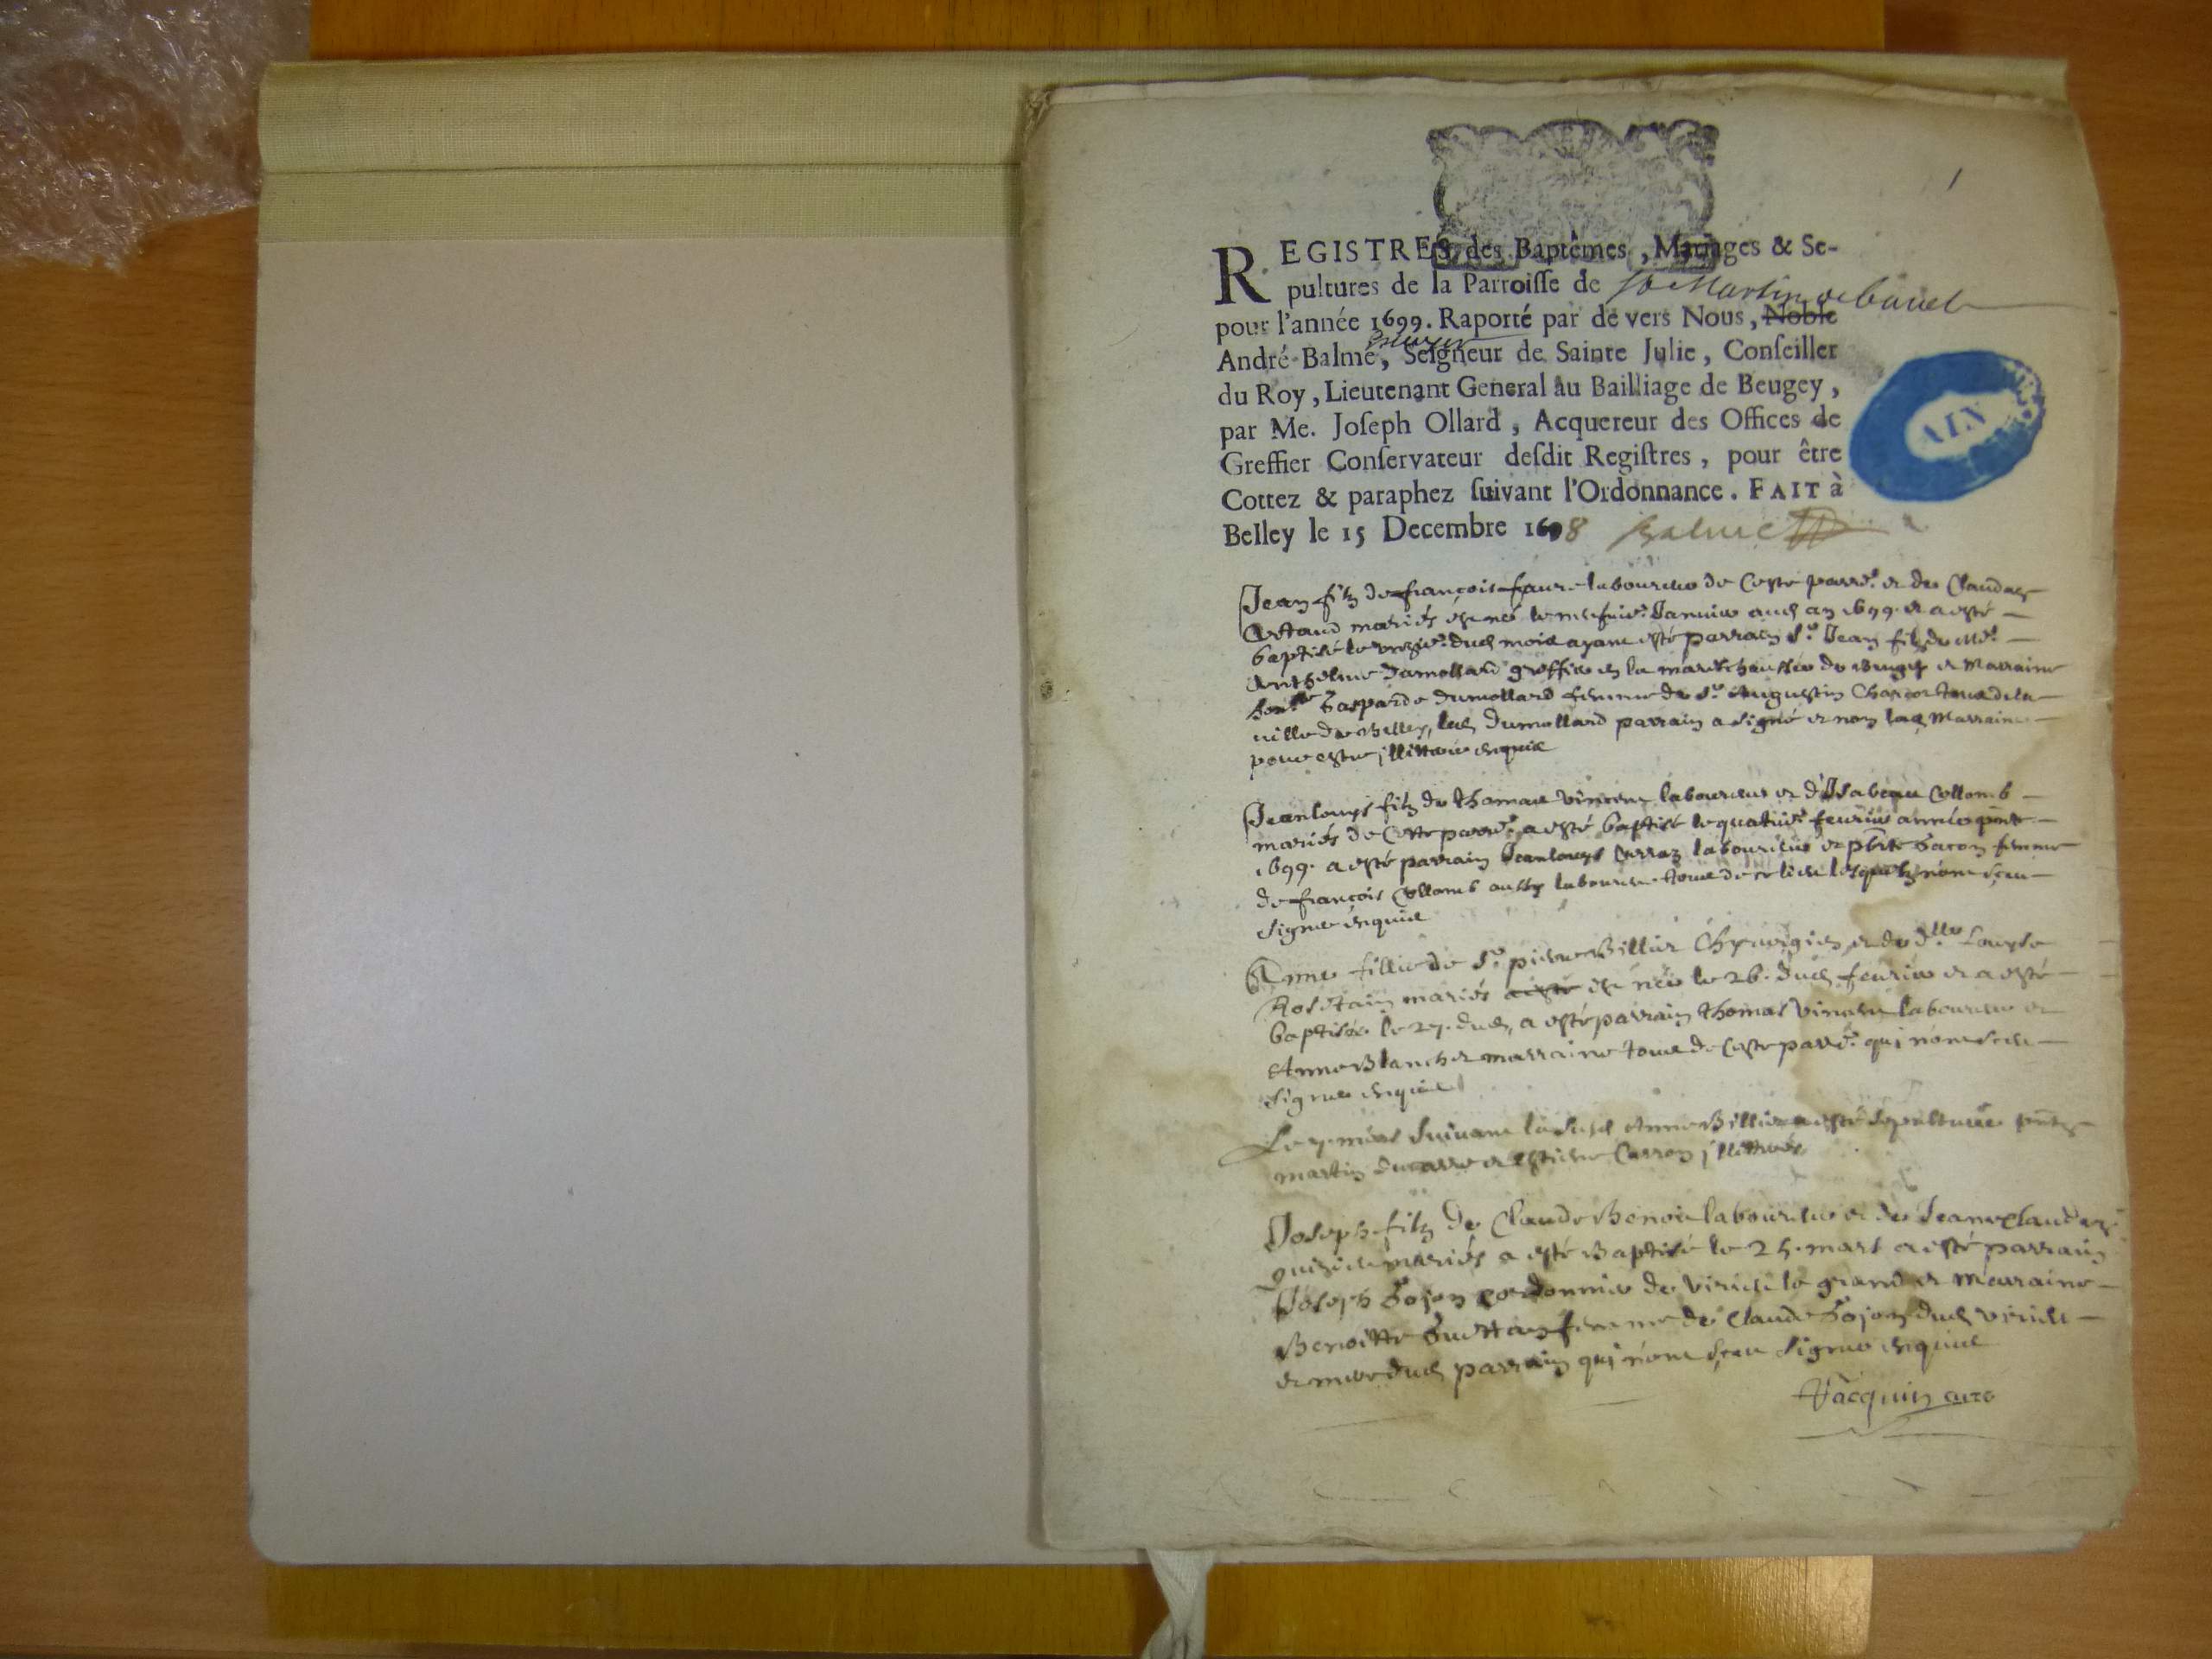 1
REGISTRES des Baptêmes, Mariages & Se-
pultures de la Parroisse de St Martin de bavel
pour l'année 1699. Raporté par de vers Nous, Noble
Escuyer
André Balme, Seigneur de Sainte Julie, Conseiller
du Roy, Lieutenant General au Bailliage de Beugey,
par Me. Joseph Ollard, Acquereur des Offices de
Greffier Conservateur desdit Registres, pour être
Cottez & paraphez suivant l'Ordonnance. FAIT à
Belley le 15 Decembre 1698 Balme
AIN
Jean filz de françois faure laboureur de Ceste parr.e et de Claudaz
mariés est né le Janvier aud an 1699. et a esté
baptisé le dud mois ayant esté parrain Sr. Jean filz de Me.
Anthelme Dumollard greffier en la mareschaussée de Bugey et Marraine
Gasparde Dumollard femme de Sr. Augustin de la
ville de Belley, led Dumollard parrain a signé et non lad Marraine
pour estre illitteree enquise
Jeanlouys filz de thomas Vincent laboureur et d'Isabeau Collomb
mariés de Cette parr.e a esté baptisé le quatrie. feuvrier année pnte
1699. a esté parrain Jeanlouys laboureur et femme
de françois Collomb aussy laboureur tous de ce lieu lesquelz n'ont sceu
signer enquis
Anne fillie de Sr. pierre Billiet Chyrurgien et de dlle Louyse
mariés a esté est née le 26. dud feuvrier et a esté
baptisée le 27. dud, a esté parrain thomas Vincent laboureur et
Anne Blanchet marraine tous de Ceste parr.e qui n'ont sceu
signer enquis
Le 7. mars suivant la susd Anne Billiet a esté sepulturée pnts
martin et estiene Carron illitterés
Joseph filz de Claude Benoit laboureur et de Jeanneclaudaz
mariés a esté Baptisé le 25. mars a esté parrain
Joseph Gojon cordonnier de virieu le grand et Marraine
Benoitte femme de Claude Gojon dud virieu
et mere dud parrain qui n'ont sceu signer enquis
Jacquin curé